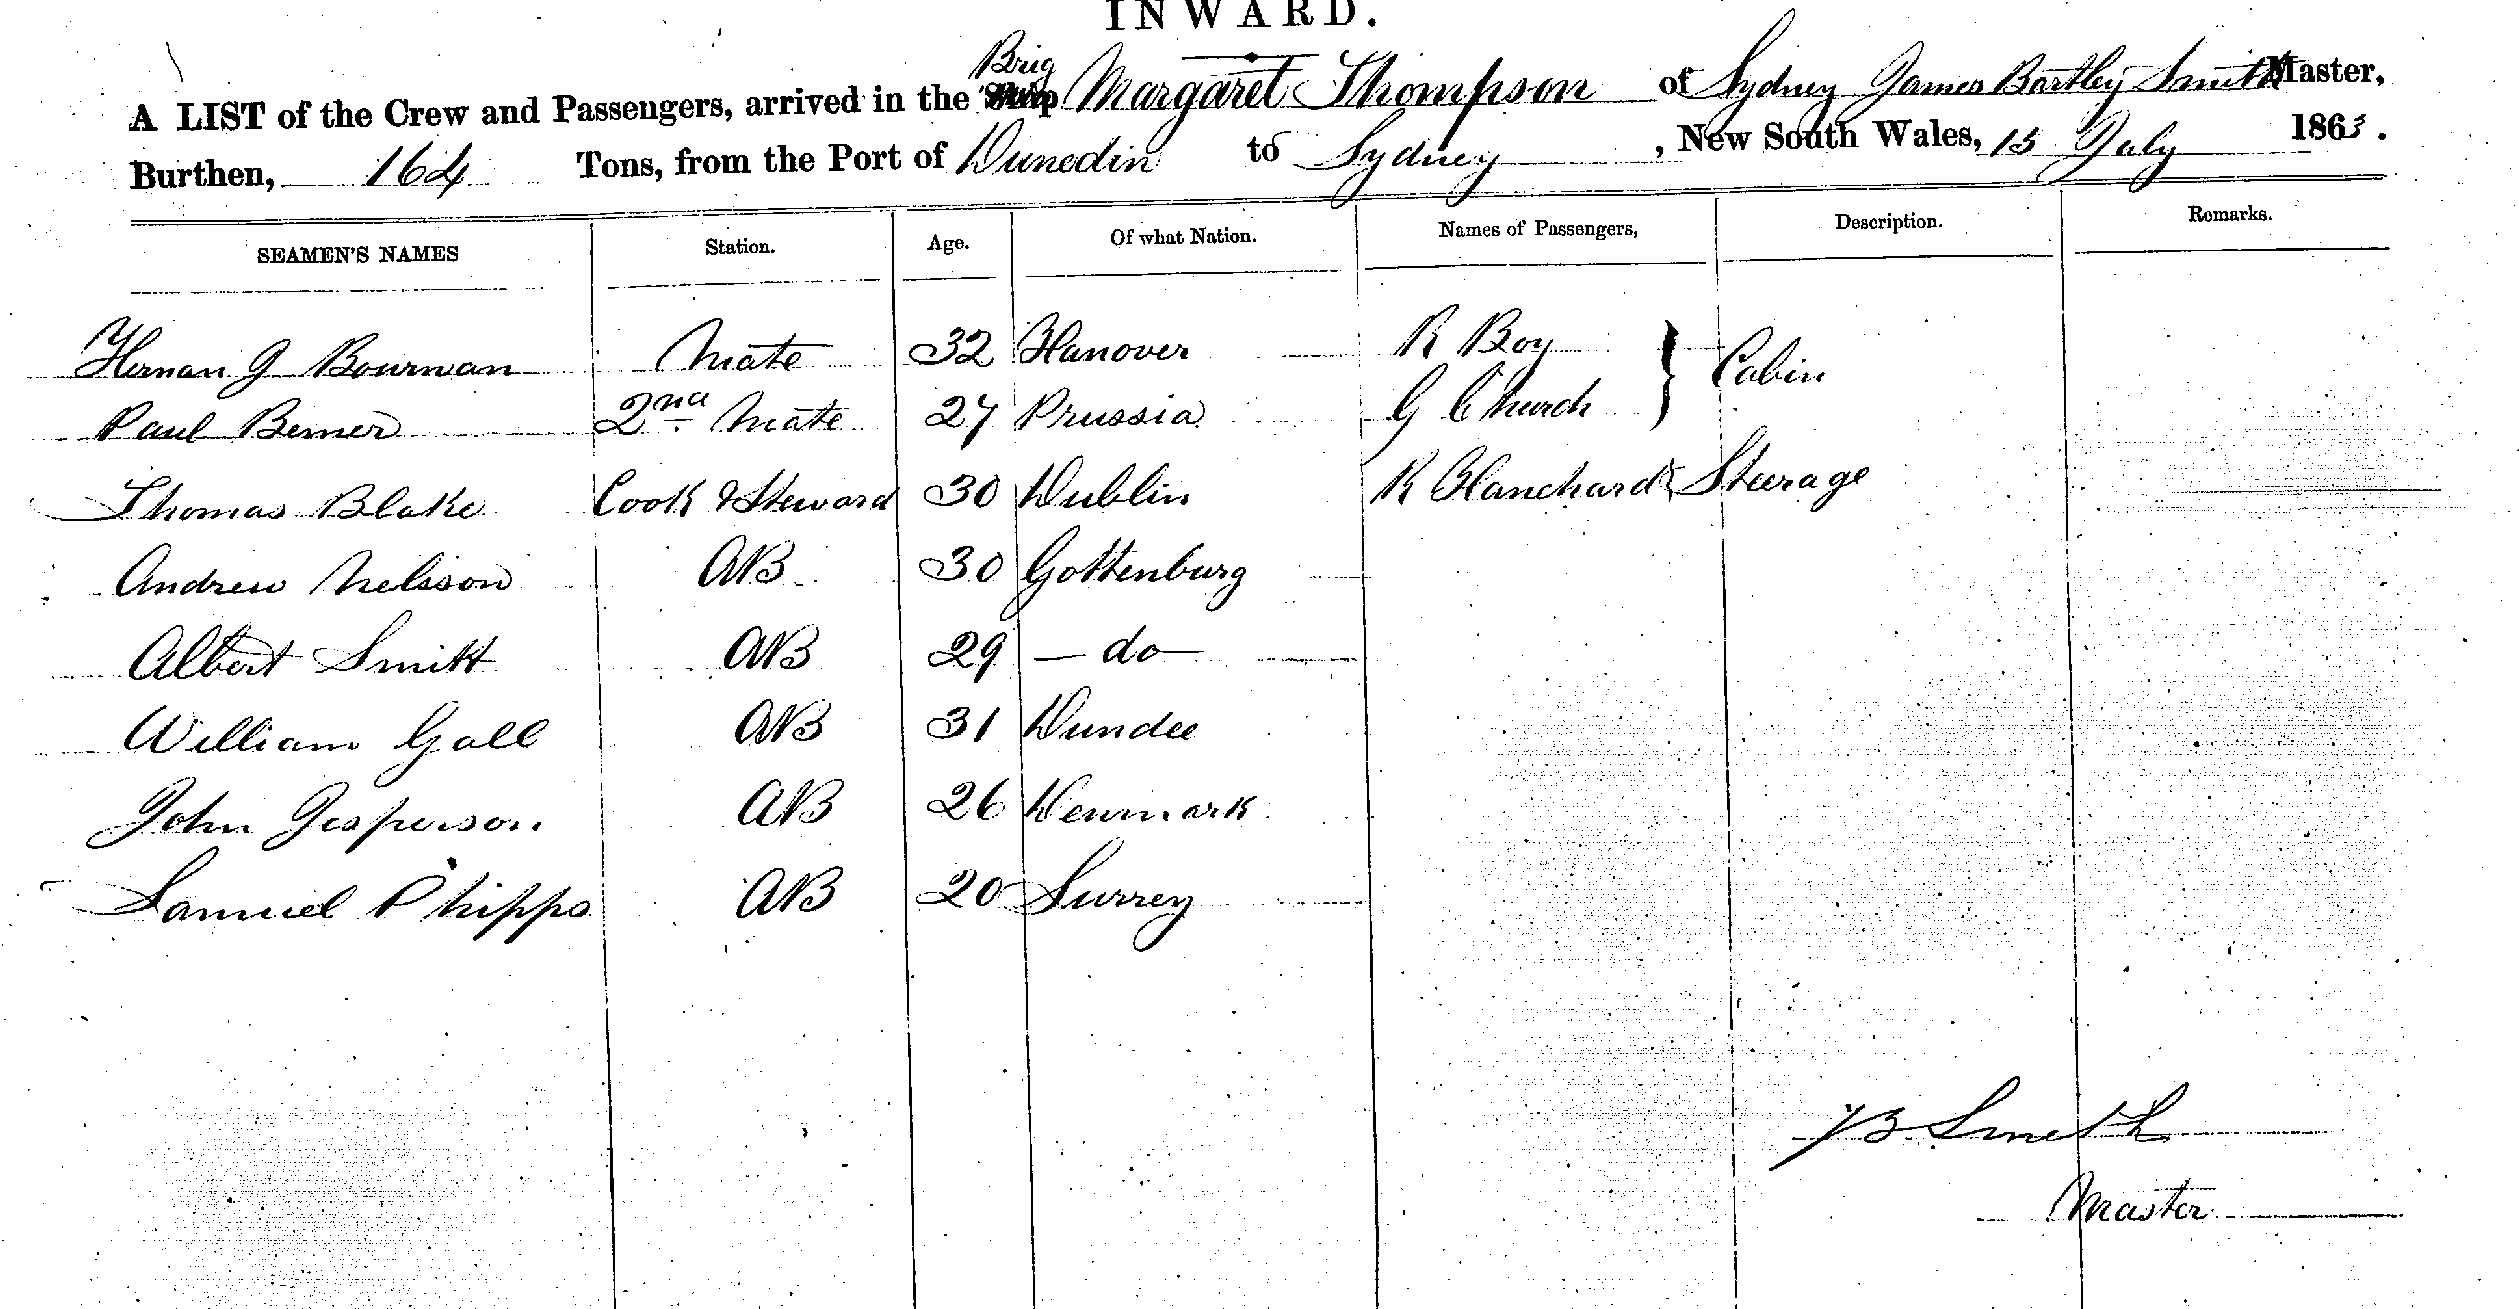 INWARD.
A LIST of the Crew and Passengers, arrived in the Brig Margaret Thompson of Sydney James Bartley Smith Master,
Burthen, 164 Tons, from the Port of Dunedin to Sydney, New South Wales, 15 July 1863.
SEAMEN'S NAMES Station. Age. Of what Nation. Names of Passengers, Description. Remarks.
Herman G Bourman Mate 32 Hanover R Boy } Cabin
Paul Berner 2nd Mate 27 Prussia G Church
Thomas Blake Cook & Steward 30 Dublin R Blanchard Steerage
Andrew Nelsson AB 30 Gottenburg
Albert Smitt AB 29 — do —
William Gall AB 31 Dundee
John Jesperson AB 26 Denmark
Samuel Phipps AB 20 Surrey
JB Smith
Master